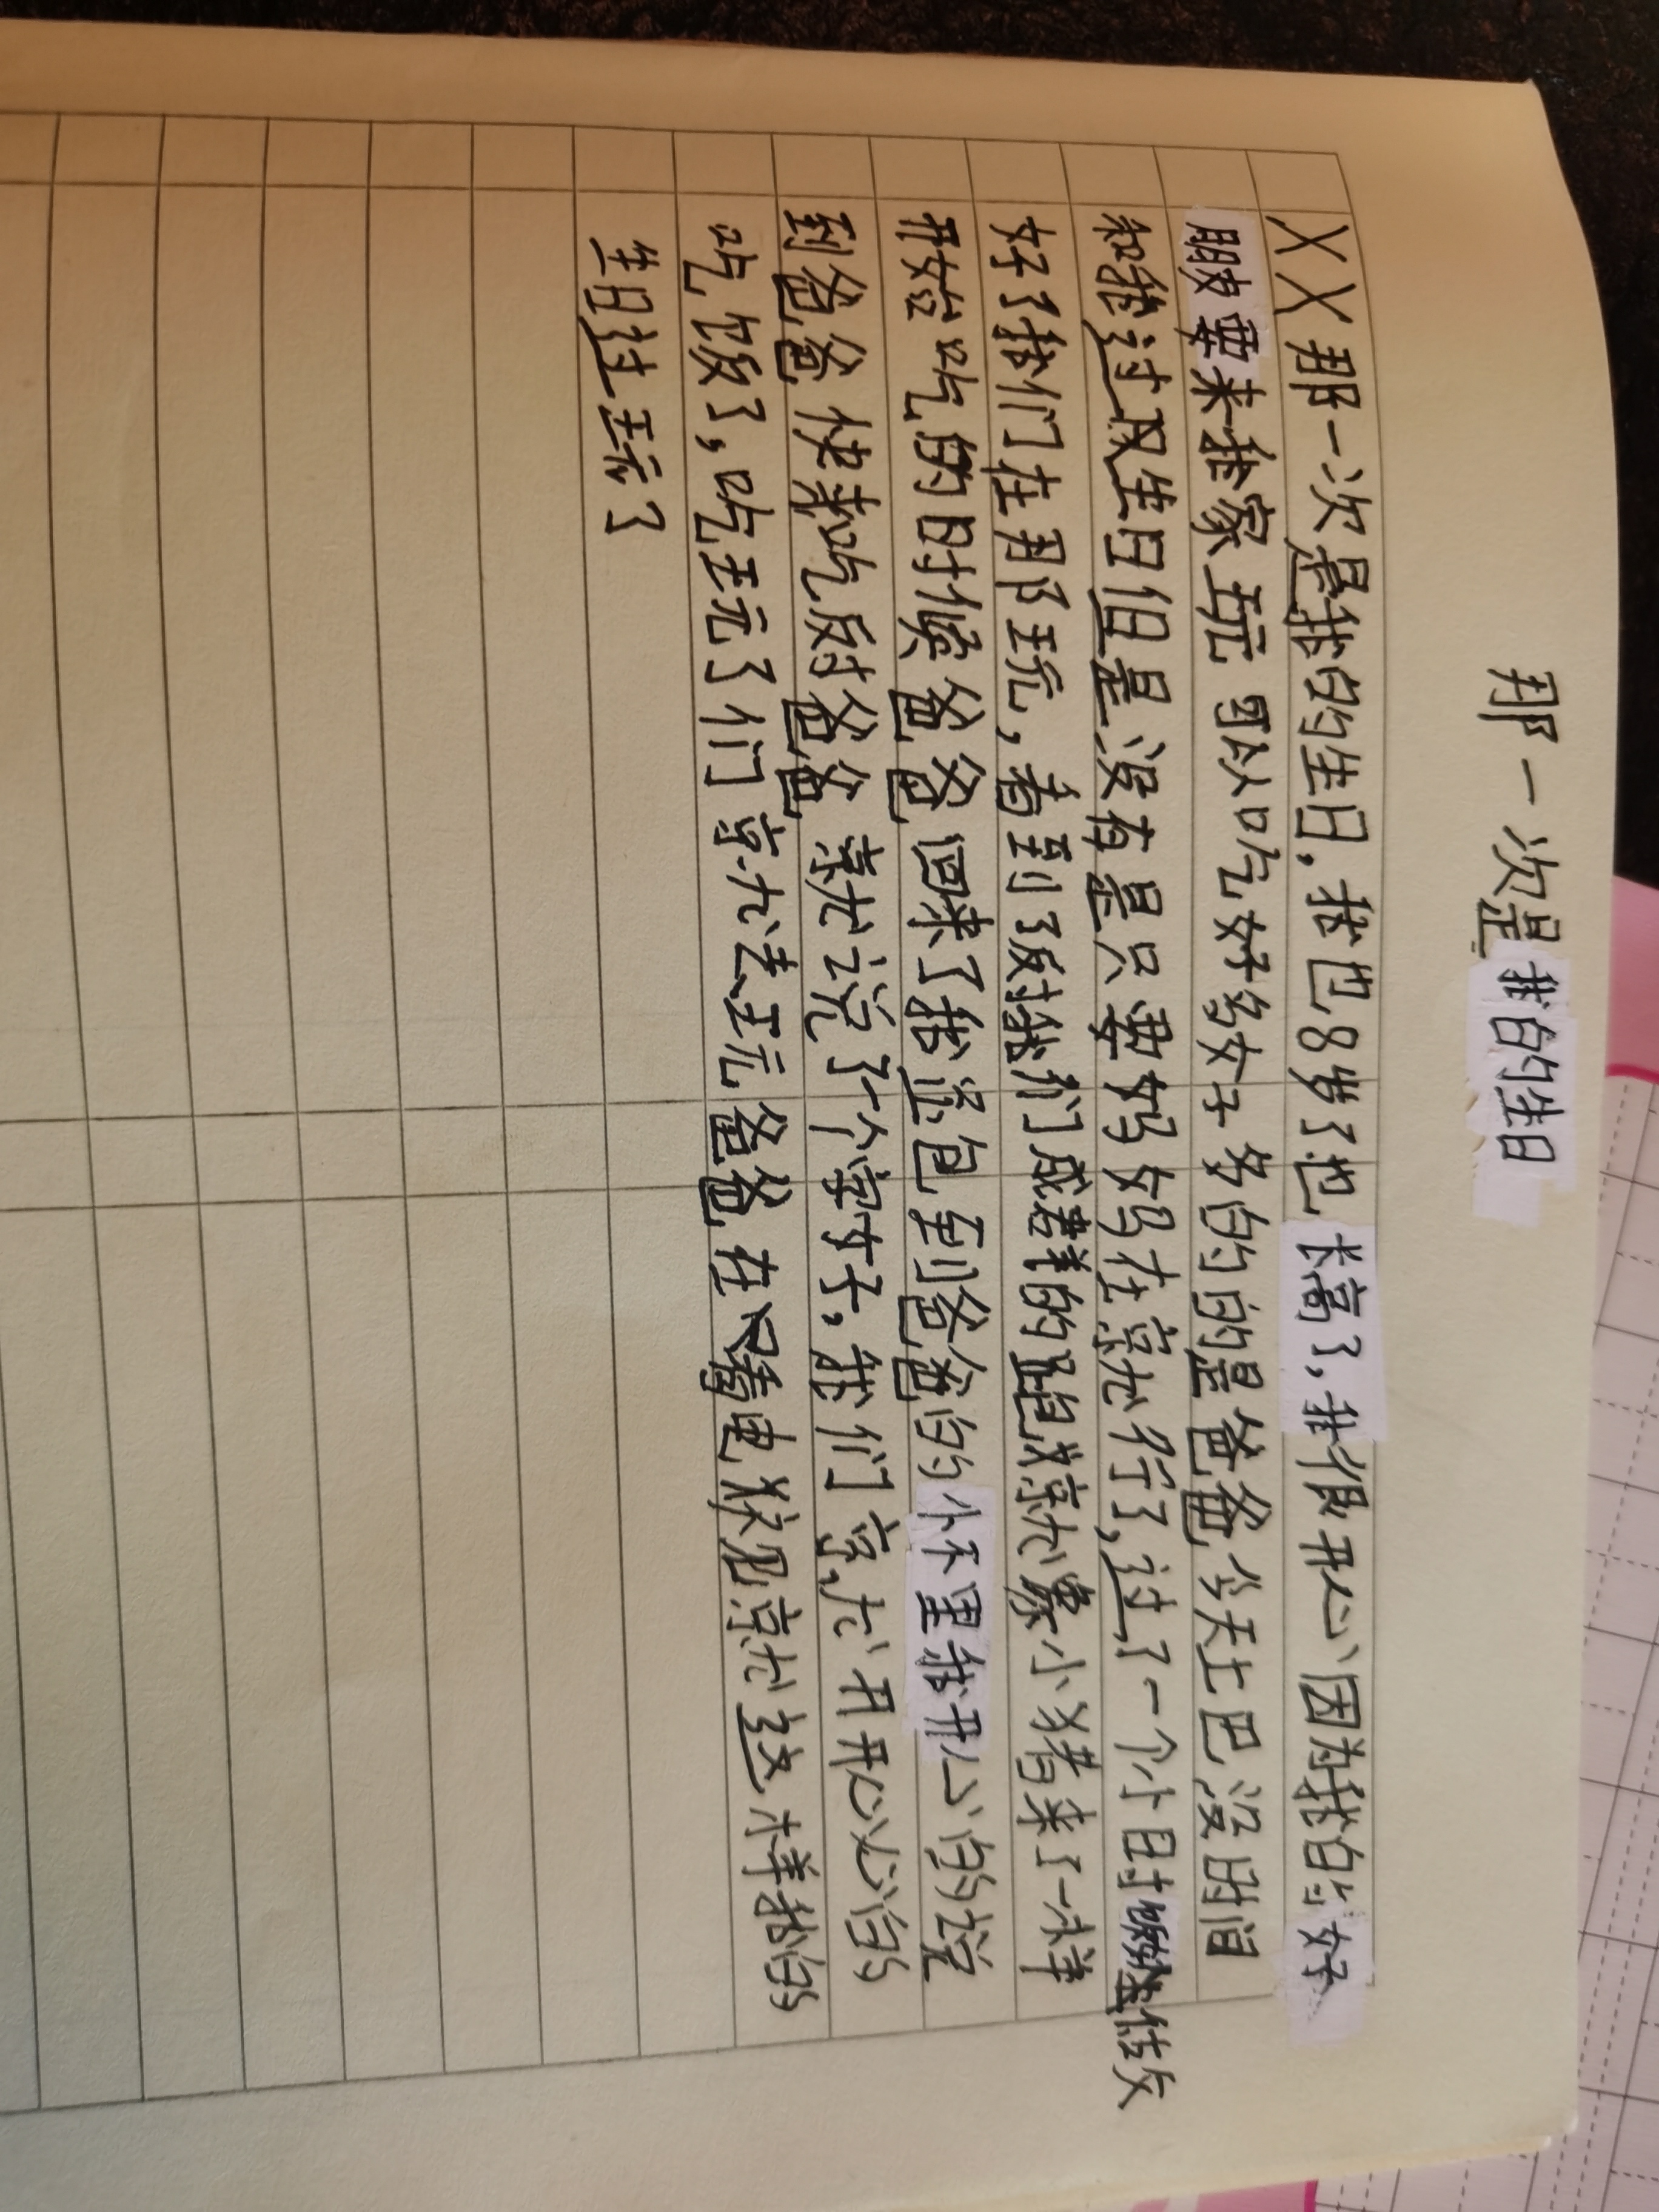 那一次是我的生日
XX那一次是我的生日，我也8岁了也长高了，我很开心因为我的好
朋友要来我家玩 可以吃好多好多的的是爸爸今天上巴没时间
和我过及生日但是没有是只要妈妈在就行了，过了一个小时候坐估女
好了我们在那玩，看到了反才我们成着羊的跑 就象小猪来了一样
开始吃的时候爸爸回来了我 包到爸爸的怀里我开心的说
到爸爸快来吃反时爸爸就说了个家好，我们就开开心心的
吃饭了，吃玩了们就去玩爸爸在只看电 见就这样我的
生日过玩了